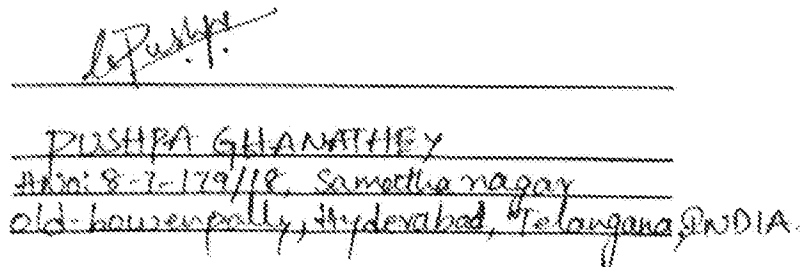 G. Pushpa
PUSHPA GHANATHEY
H.no: 8-7-179/18, Sameethanagar
old-bowenpally, Hyderabad, Telangana, INDIA.